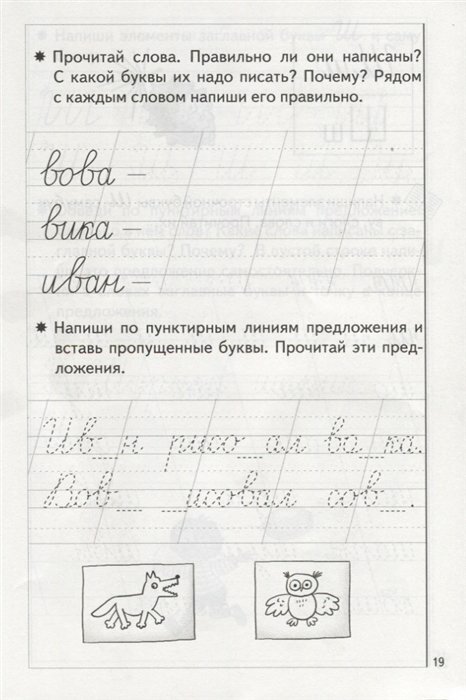 ✷ Прочитай слова. Правильно ли они написаны?
С какой буквы их надо писать? Почему? Рядом
с каждым словом напиши его правильно.
вова —
вика —
иван —
✷ Напиши по пунктирным линиям предложения и
вставь пропущенные буквы. Прочитай эти пред-
ложения.
Ив_н рисо_ал во_ка.
Вов_ _исовал сов_.
19